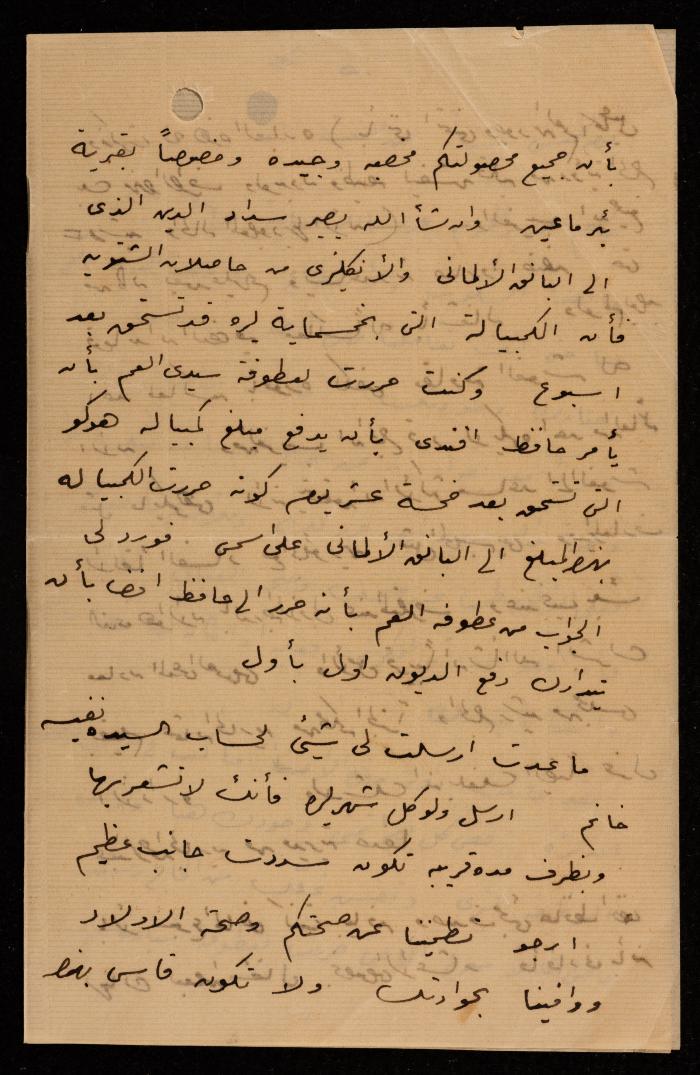 بأن جميع محصولتكم مخصبه وجيده وخصوصاً بقرية
بئر ماعين وانشأ الله يصير سداد الدين الذى
الى البانق الألمانى والأنكليزى من حاصلات الشتويه
فأن الكمبيالة التى بخمسماية ليره قد تستحق بعد
اسبوع وكنت حررت لعطوفة سيدى العم بأن
يأمر حافظ افندى بأن يدفع مبلغ كمبياله هوكو
التى تستحق بعد خمسة عشر يوم كونه حررت الكمبياله
بهذا المبلغ الى البانق الألمانى على اسمى فورد لى
الجواب من عطوفه العم بأنه حرر الى حافظ افندى بأن
يتدارك دفع الديون اول بأول
ما عدت ارسلت لى شيئ لحساب السيده نفيسه
خانم ارسل ولو كل شهر ليره فأنك لا تشعر بها
وبظرف مدة قريبه تكون سددت جانب عظيم
ارجو تطمينا عن صحتكم وصحة الاولاد
ووافينا بحوادثك ولا تكون قاسى بهذا